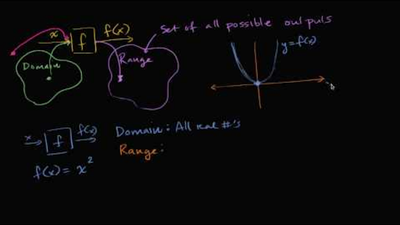 Set of all possible outputs
x
f
f(x)
Domain
Range
y=f(x)
x
f
f(x)
Domain: All real #'s
Range:
f(x) = x²